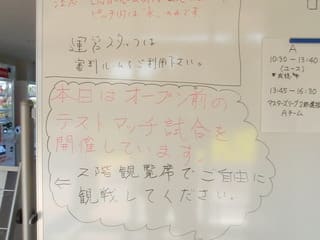 運営スタッフは
審判ルームをご利用下さい。
本日はオープン前の
テストマッチ試合を
開催しています。
← 2階観覧席でご自由に
観戦してください。
A
10:30-13:40
(ユース)
13:45-16:30
Aチーム